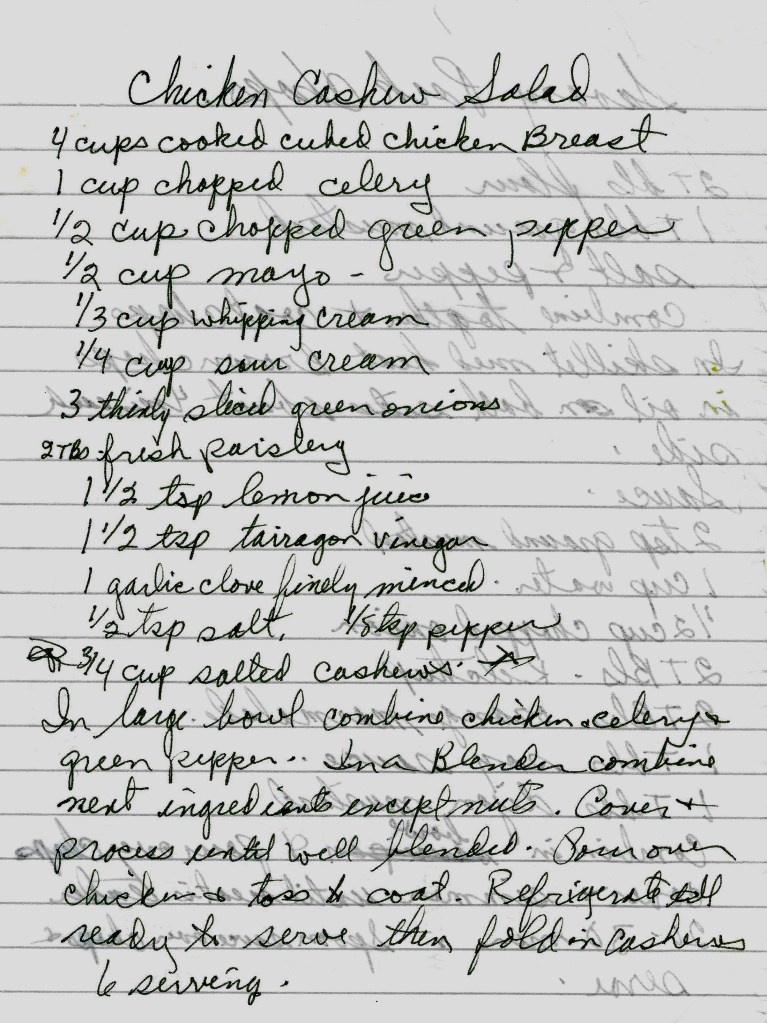 Chicken Cashew Salad
4 cups cooked cubed chicken Breast
1 cup chopped celery
1/2 cup chopped green pepper
1/2 cup mayo -
1/3 cup whipping cream
1/4 cup sour cream
3 thinly sliced green onions
2 TBS fresh paisley
1 1/2 tsp lemon juice
1 1/2 tsp tairagon vinegar
1 garlic clove finely minced.
1/2 tsp salt, 1/8 tsp pepper
3/4 cup salted cashews.
In large bowl combine chicken & celery &
green pepper.. In a Blender combine
next ingredients except nuts. Cover +
process until well blended. Pour over
chicken & toss to coat. Refrigerate till
ready to serve then fold in cashews
6 serving.